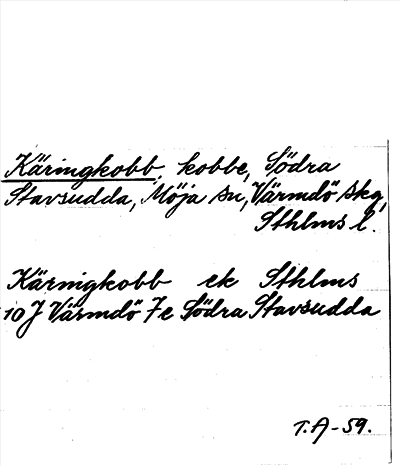 Käringkobb, kobbe, Södra
Stavsudda, Möja sn, Värmdö skg,
Sthlms l.
Kärnigkobb ek Sthlms
10 J Värmdö 7e Södra Stavsudda
T.A-59.